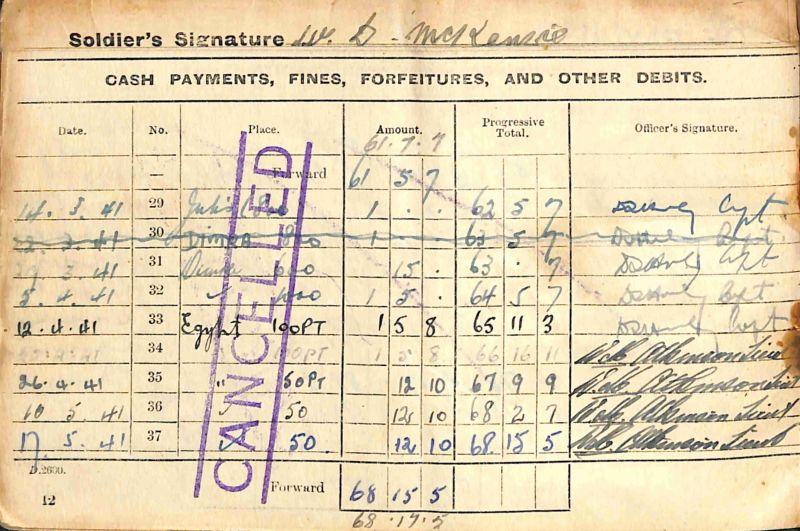 Soldier's Signature W. D. McKenzie
CASH PAYMENTS, FINES, FORFEITURES, AND OTHER DEBITS.
Date. No. Place. Amount. Progressive Total. Officer's Signature.
61.7.7
— Forward 61 5 7
14.3.41 29 1 . . 62 5 7 Capt
30 Dimra 800 1 63 5 7 Capt
3.41 31 Dimra 600 15 . 63 . 7 Capt
5.4.41 32 " 1000 1 5 . 64 5 7 Capt
12.4.41 33 Egypt 100PT 1 5 8 65 11 3 Capt
34 100PT 1 5 8 66 16 11 Atkinson Lieut
26.4.41 35 " 50PT 12 10 67 9 9 Atkinson Lieut
10 5. 41 36 " 50 12 10 68 2 7 Atkinson Lieut
17. 5. 41 37 " 50. 12 10 68 15 5 Atkinson Lieut
CANCELLED
D.2600.
Forward 68 15 5
12
68.17.5